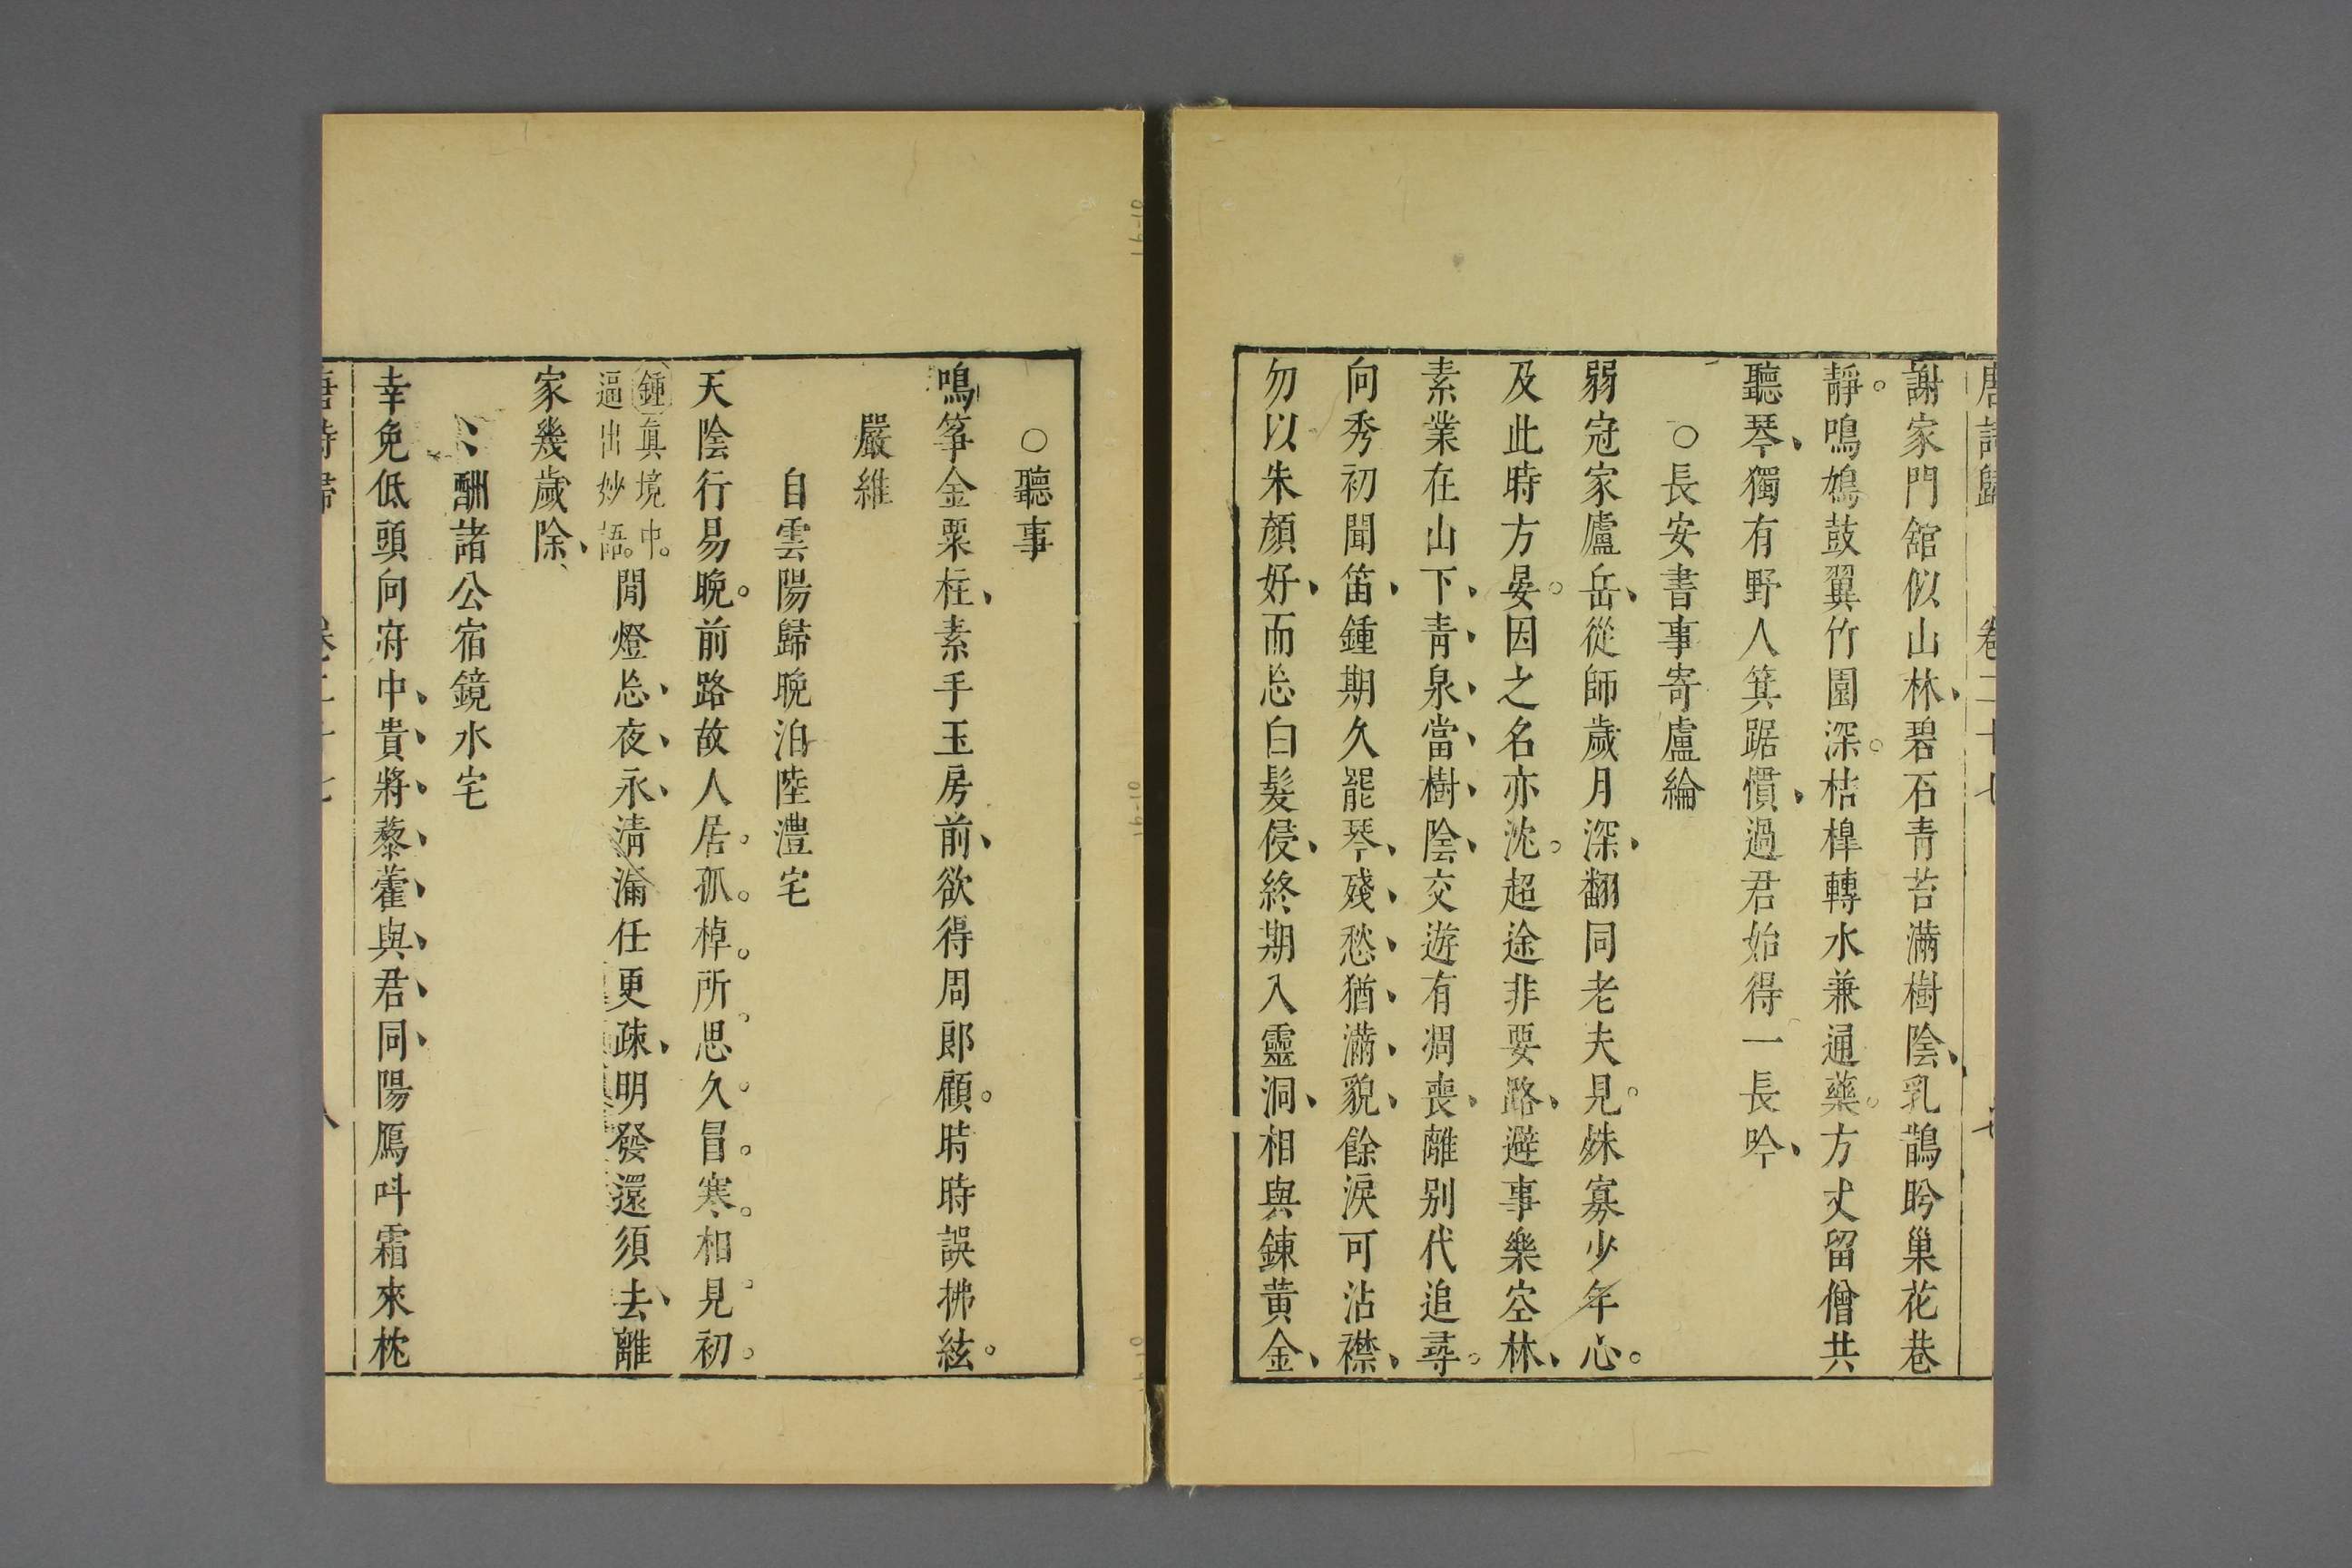 唐詩歸 卷二十七 七
謝家門館似山林、碧石青苔滿樹陰、乳鵲眄巢花巷
靜。鳴鳩鼓翼竹園深。桔槔轉水兼通藥。方丈留僧共
聽琴、獨有野人箕踞慣、過君始得一長吟、
○長安書事寄盧綸
弱冠家廬岳、從師歲月深、翻同老夫見。姝寡少年心。
及此時方晏。因之名亦沈。超途非要路、避事樂空林、
素業在山下、青泉、當、樹、陰、交遊有凋喪、離别代追尋。
向秀初聞笛、鍾期久罷琴、殘、愁、猶、滿、貌、餘淚可沾襟、
勿以朱顏好、而忘白髮侵、終期入靈洞、相與鍊黄金、
○聽事
鳴筝金粟柱、素手玉房前、欲得周郎顧。時時誤拂絃。
嚴維
自雲陽歸晚泊陸澧宅
天陰行易晚。前路故人居。孤。棹。所。思。久。冒。寒。相。見。初。
鍾真境中。逼出妙語。閒燈忘、夜、永、清漏任更疎、明發還須去、離
家幾歲除、
酬諸公宿鏡水宅
幸免低頭向府中、貴、將、藜、藿、與、君、同、陽鴈呌霜來枕
唐詩歸 卷二十七 八